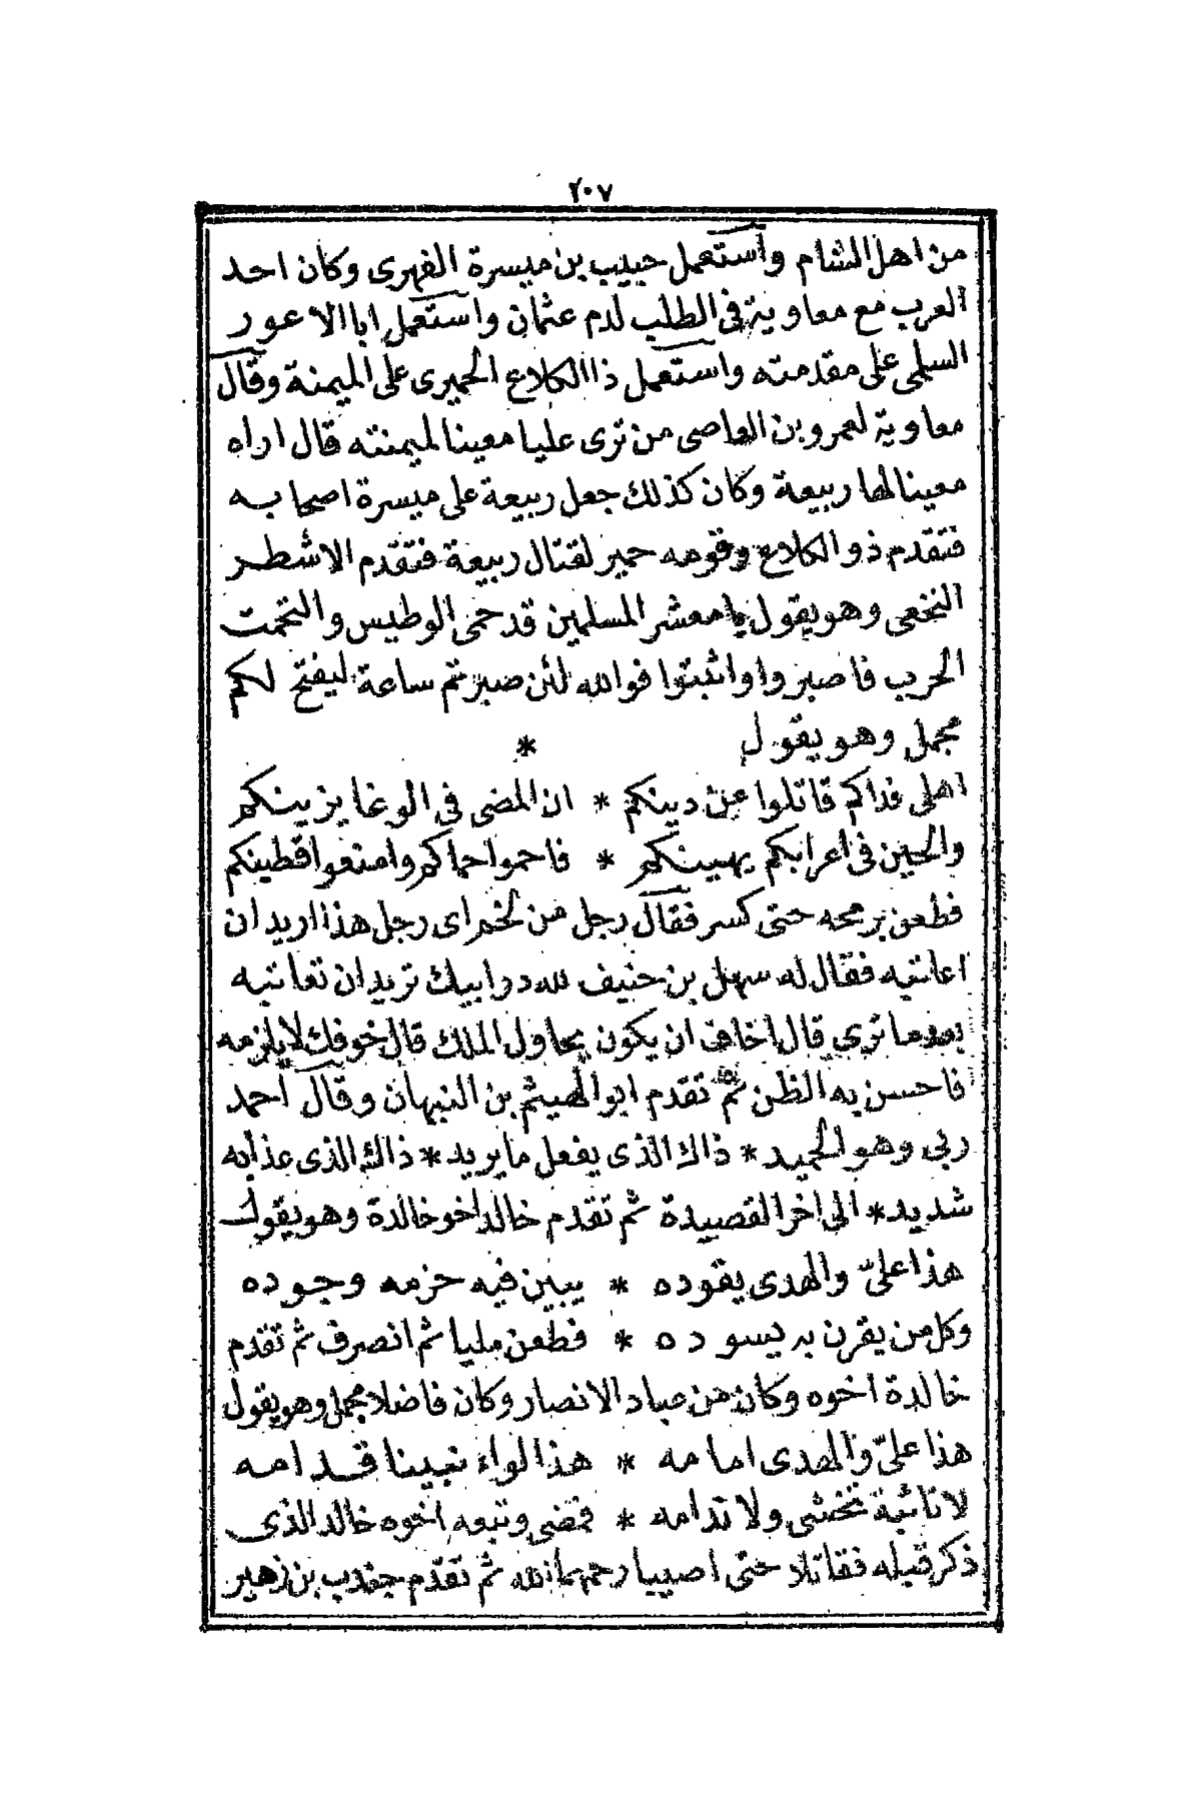 ٢٠٧
من اهل الشام واستعمل حبيب بن ميسرة الفهرى وكان احد
العرب مع معاوية فى الطلب لدم عثمان واستعمل ابا الاعور
السلمى على مقدمته واستعمل ذا الكلاع الحميرى على الميمنة وقال
معاوية لعمرو بن العاصى من ترى عليا معينا لميمنته قال اراه
معينا لها ربيعة وكان كذلك جعل ربيعة على ميسرة اصحابه
فتقدم ذو الكلاع وقومه حمير لقتال ربيعة فتقدم الاشطر
النخعى وهو يقول يا معشر المسلمين قد حمى الوطيس والتحمت
الحرب فاصبروا واثبتوا فوالله لئن صبرتم ساعة ليفتح لكم
مجمل وهو يقول *
اهلى فداكم قاتلوا عن دينكم * ان المضى فى الوغا يزينكم
والجبن فى اعرابكم يهينكم * فاحموا حماكم وامنعوا قطينكم
فطعن برمحه حتى كسر فقال رجل من لخم اى رجل هذا اريد ان
اعاتبه فقال له سهل بن حنيف لله در ابيك تريد ان تعاتبه
بعد ما ترى قال اخاف ان يكون يحاول الملك قال خوفك لا يلزمه
فاحسن به الظن ثم تقدم ابو الهيثم بن النبهان وقال احمد
ربى وهو الحميد * ذاك الذى يفعل ما يريد * ذاك الذى عذابه
شديد * الى اخر القصيدة ثم تقدم خالد اخو خالدة وهو يقول
هذا علىّ والهدى يقوده * يبين فيه حزمه وجوده
وكل من يقرن به يسوده * فطعن مليا ثم انصرف ثم تقدم
خالدة اخوه وكان من عباد الانصار وكان فاضلا مجمل وهو يقول
هذا علىّ والهدى امامه * هذا لواء نبينا قدامه
لا نائبة تخشى ولا ندامه * فمضى وتبعه اخوه خالد الذى
ذكر قبله فقاتلا حتى اصيبا رحمهما الله ثم تقدّم جندب بن زهير